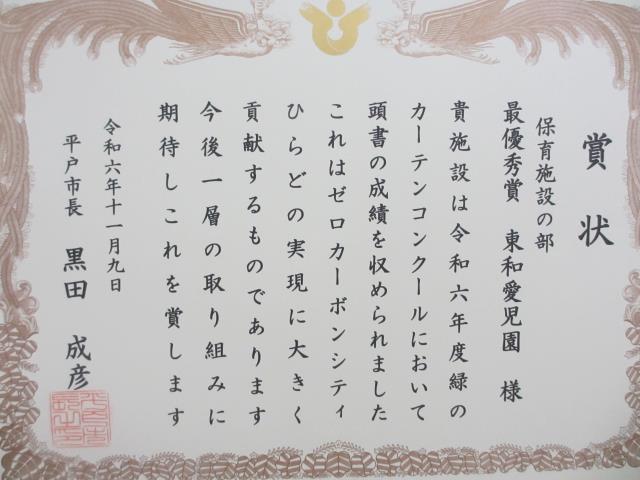 賞状
保育施設の部
最優秀賞 東和愛児園 様
貴施設は令和六年度緑の
カーテンコンクールにおいて
頭書の成績を収められました
これはゼロカーボンシティ
ひらどの実現に大きく
貢献するものであります
今後一層の取り組みに
期待しこれを賞します
令和六年十一月九日
平戸市長 黒田 成彦